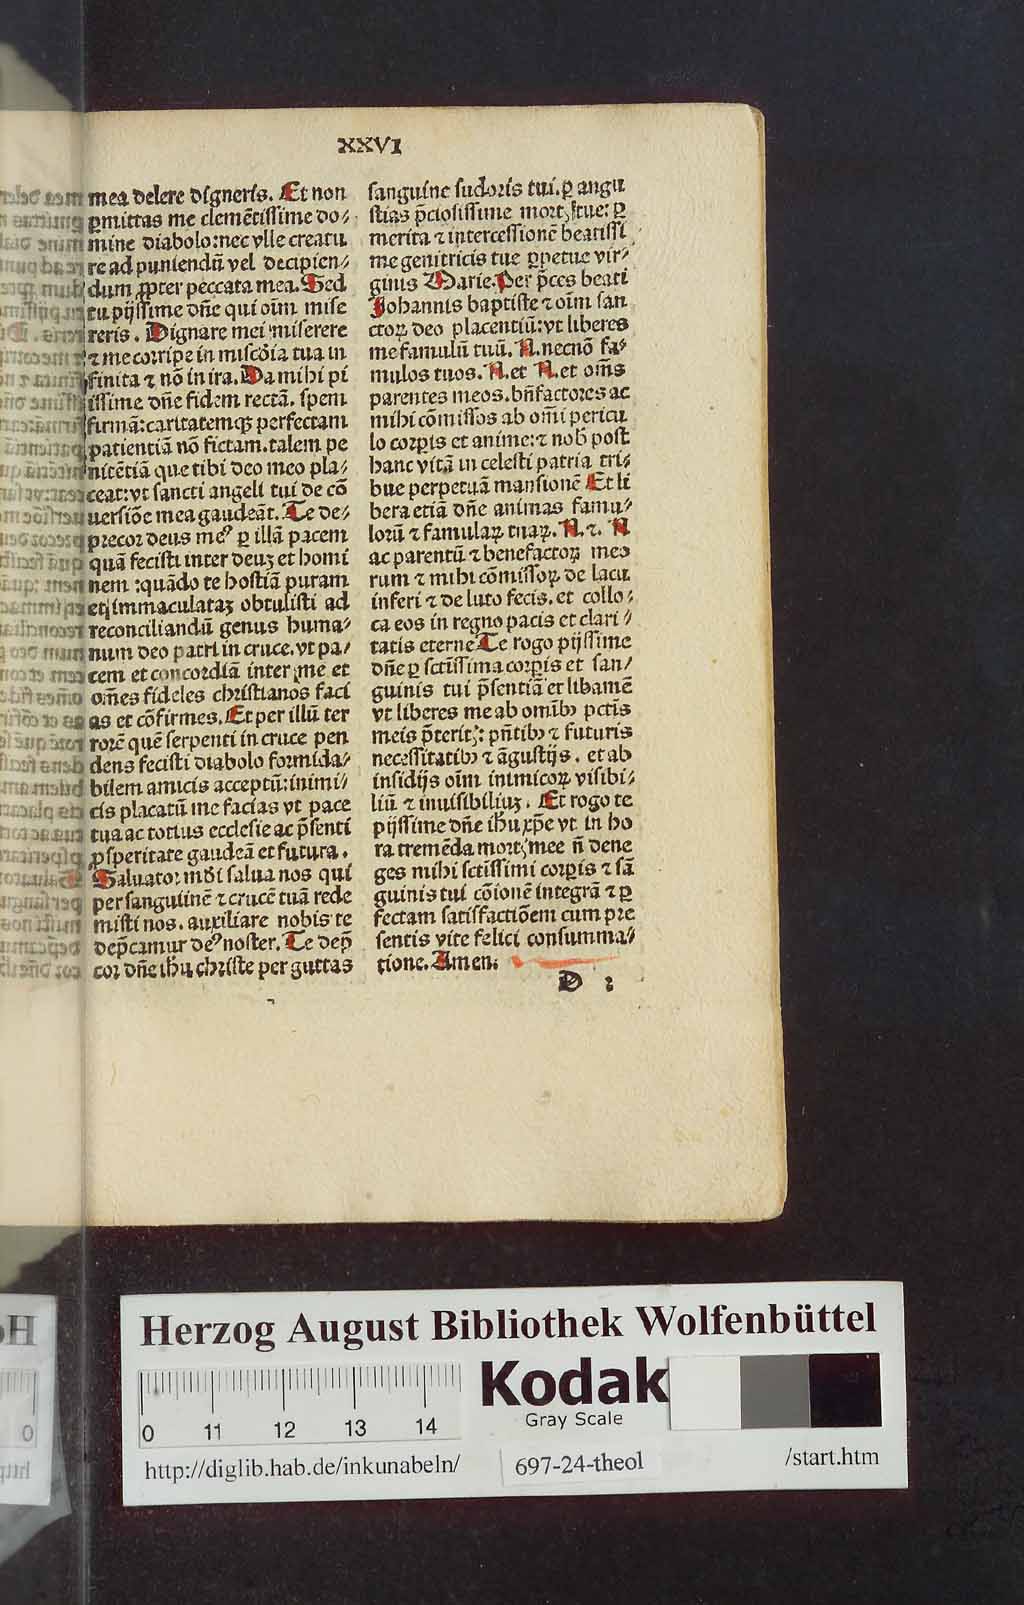 XXVI
mea delere digneris. Et non
ꝑmittas me clemẽtissime do⸗
mine diabolo: nec vlle creatu
re ad puniendũ vel decipien⸗
dum ꝓpter peccata mea. Sed
tu pijssime dñe qui oĩm mise
reris. Dignare mei miserere
⁊ me corripe in misc̃dia tua in
finita ⁊ nõ in ira. Da mihi pi
issime dñe fidem rectã. spem
firmã: caritatemqꝫ perfectam
patientiã nõ fictam. talem pe
nitẽtiã que tibi deo meo pla⸗
ceat: vt sancti angeli tui de cõ
uersiõe mea gaudeãt. Te de⸗
precor deus meꝰ ꝑ illã pacem
quã fecisti inter deuꝫ et homi
nem: quãdo te hostiã puram
et immaculataꝫ obtulisti ad
reconciliandũ genus huma⸗
num deo patri in cruce. vt pa⸗
cem et concordiã inter me et
om̃es fideles christianos faci
as et cõfirmes. Et per illũ ter
rorẽ quẽ serpenti in cruce pen
dens fecisti diabolo formida⸗
bilem amicis acceptũ: inimi⸗
cis placatũ me facias vt pace
tua ac totius ecclesie ac p̃senti
ꝓsperitate gaudeã et futura.
Saluator mũdi salua nos qui
per sanguinẽ ⁊ crucẽ tuã rede
misti nos. auxiliare nobis te
dep̃camur deꝰ noster. Te dep̃
cor dñe ihũ christe per guttas
sanguine sudoris tui. ꝑ angu
stias p̃ciosissime mortꝭ tue: ꝑ
merita ⁊ intercessionẽ beatissi
me genitricis tue ꝑpetue vir⸗
ginis Marie. Per p̃ces beati
Johannis baptiste ⁊ oĩm san
ctoꝝ deo placentiũ: vt liberes
me famulũ tuũ. N. necnõ fa⸗
mulos tuos. N. et N. et om̃s
parentes meos. bñfactores ac
mihi cõmissos ab om̃i pericu
lo corꝑis et anime: ⁊ nob̃ post
hanc vitã in celesti patria tri⸗
bue perpetuã mansionẽ Et li
bera etiã dñe animas famu⸗
lorũ ⁊ famulaꝝ tuaꝝ. N. ⁊. N
ac parentũ ⁊ benefactoꝝ meo
rum ⁊ mihi cõmissoꝝ de lacu
inferi ⁊ de luto fecis. et collo⸗
ca eos in regno pacis et clari⸗
tatis eterne Te rogo pijssime
dñe ꝑ sctĩssima corꝑis et san⸗
guinis tui p̃sentiã et libamẽ
vt liberes me ab omĩbꝰ pctĩs
meis p̃teritꝭ: pñtibꝰ ⁊ futuris
necessitatibꝰ ⁊ ãgustijs. et ab
insidijs oĩm inimicoꝝ visibi⸗
liũ ⁊ inuisibiliuꝫ. Et rogo te
pijssime dñe ihũ xp̃e vt in ho
ra tremẽda mortꝭ mee ñ dene
ges mihi sctĩssimi corꝑis ⁊ sã
guinis tui cõionẽ integrã ⁊ ꝑ
fectam satisfactiõem cum pre
sentis vite felici consumma⸗
tione. Amen.
D 2
Herzog August Bibliothek Wolfenbüttel
0 11 12 13 14
Kodak
Gray Scale
http://diglib.hab.de/inkunabeln/
697-24-theol
/start.htm